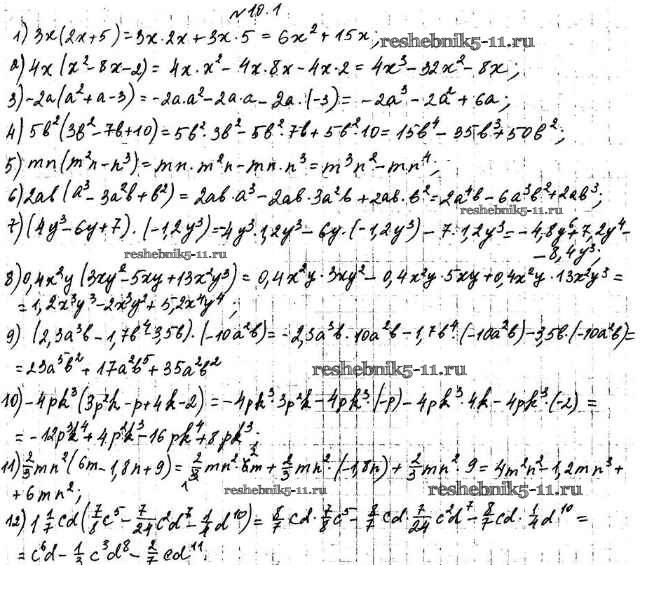 №10.1
1) 3x(2x+5)=3x·2x+3x·5=6x²+15x;
reshebnik5-11.ru
2) 4x(x²-8x-2)=4x·x²-4x·8x-4x·2=4x³-32x²-8x;
3) -2a(a²+a-3)=-2a·a²-2a·a-2a·(-3)=-2a³-2a²+6a;
4) 5b²(3b²-7b+10)=5b²·3b²-5b²·7b+5b²·10=15b⁴-35b³+50b²;
5) mn(m²n-n³)=mn·m²n-mn·n³=m³n²-mn⁴;
6) 2ab(a³-3a²b+b²)=2ab·a³-2ab·3a²b+2ab·b²=2a⁴b-6a³b²+2ab³;
reshebnik5-11.ru
7) (4y³-6y+7)·(-1,2y³)=-4y³·1,2y³-6y·(-1,2y³)-7·1,2y³=-4,8y⁶+7,2y⁴-
-8,4y³;
reshebnik5-11.ru
8) 0,4x²y(3xy²-5xy+13x²y³)=0,4x²y·3xy²-0,4x²y·5xy+0,4x²y·13x²y³=
=1,2x³y³-2x³y²+5,2x⁴y⁴;
9) (2,3a³b-1,7b⁴-3,5b)·(-10a²b)=-2,3a³b·10a²b-1,7b⁴·(-10a²b)-3,5b·(-10a²b)=
=23a⁵b²+17a²b⁵+35a²b²
reshebnik5-11.ru
10) -4pk³(3p²k-p+4k-2)=-4pk³·3p²k-4pk³·(-p)-4pk³·4k-4pk³·(-2)=
=-12p³k⁴+4p²k³-16pk⁴+8pk³;
11) 2/3mn²(6m-1,8n+9)=2/3mn²·6m+2/3mn²·(-1,8n)+2/3mn²·9=4m²n²-1,2mn³+
+6mn²;
reshebnik5-11.ru
reshebnik5-11.ru
12) 1 1/7cd(7/8c⁵-7/24c²d⁷-1/4d¹⁰)=8/7cd·7/8c⁵-8/7cd·7/24c²d⁷-8/7cd·1/4d¹⁰=
=c⁶d-1/3c³d⁸-2/7cd¹¹.